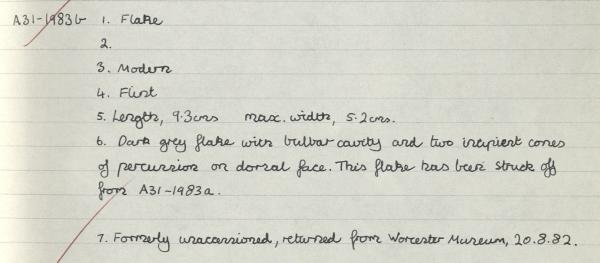 A31-1983b 1. Flake
2.
3. Modern
4. Flint
5. Length, 9.3cms max. width, 5.2cms.
6. Dark grey flake with bulbar cavity and two incipient cones
of percussion on dorsal face. This flake has been struck off
from A31-1983a.
7. Formerly unaccessioned, returned from Worcester Museum, 20.8.82.